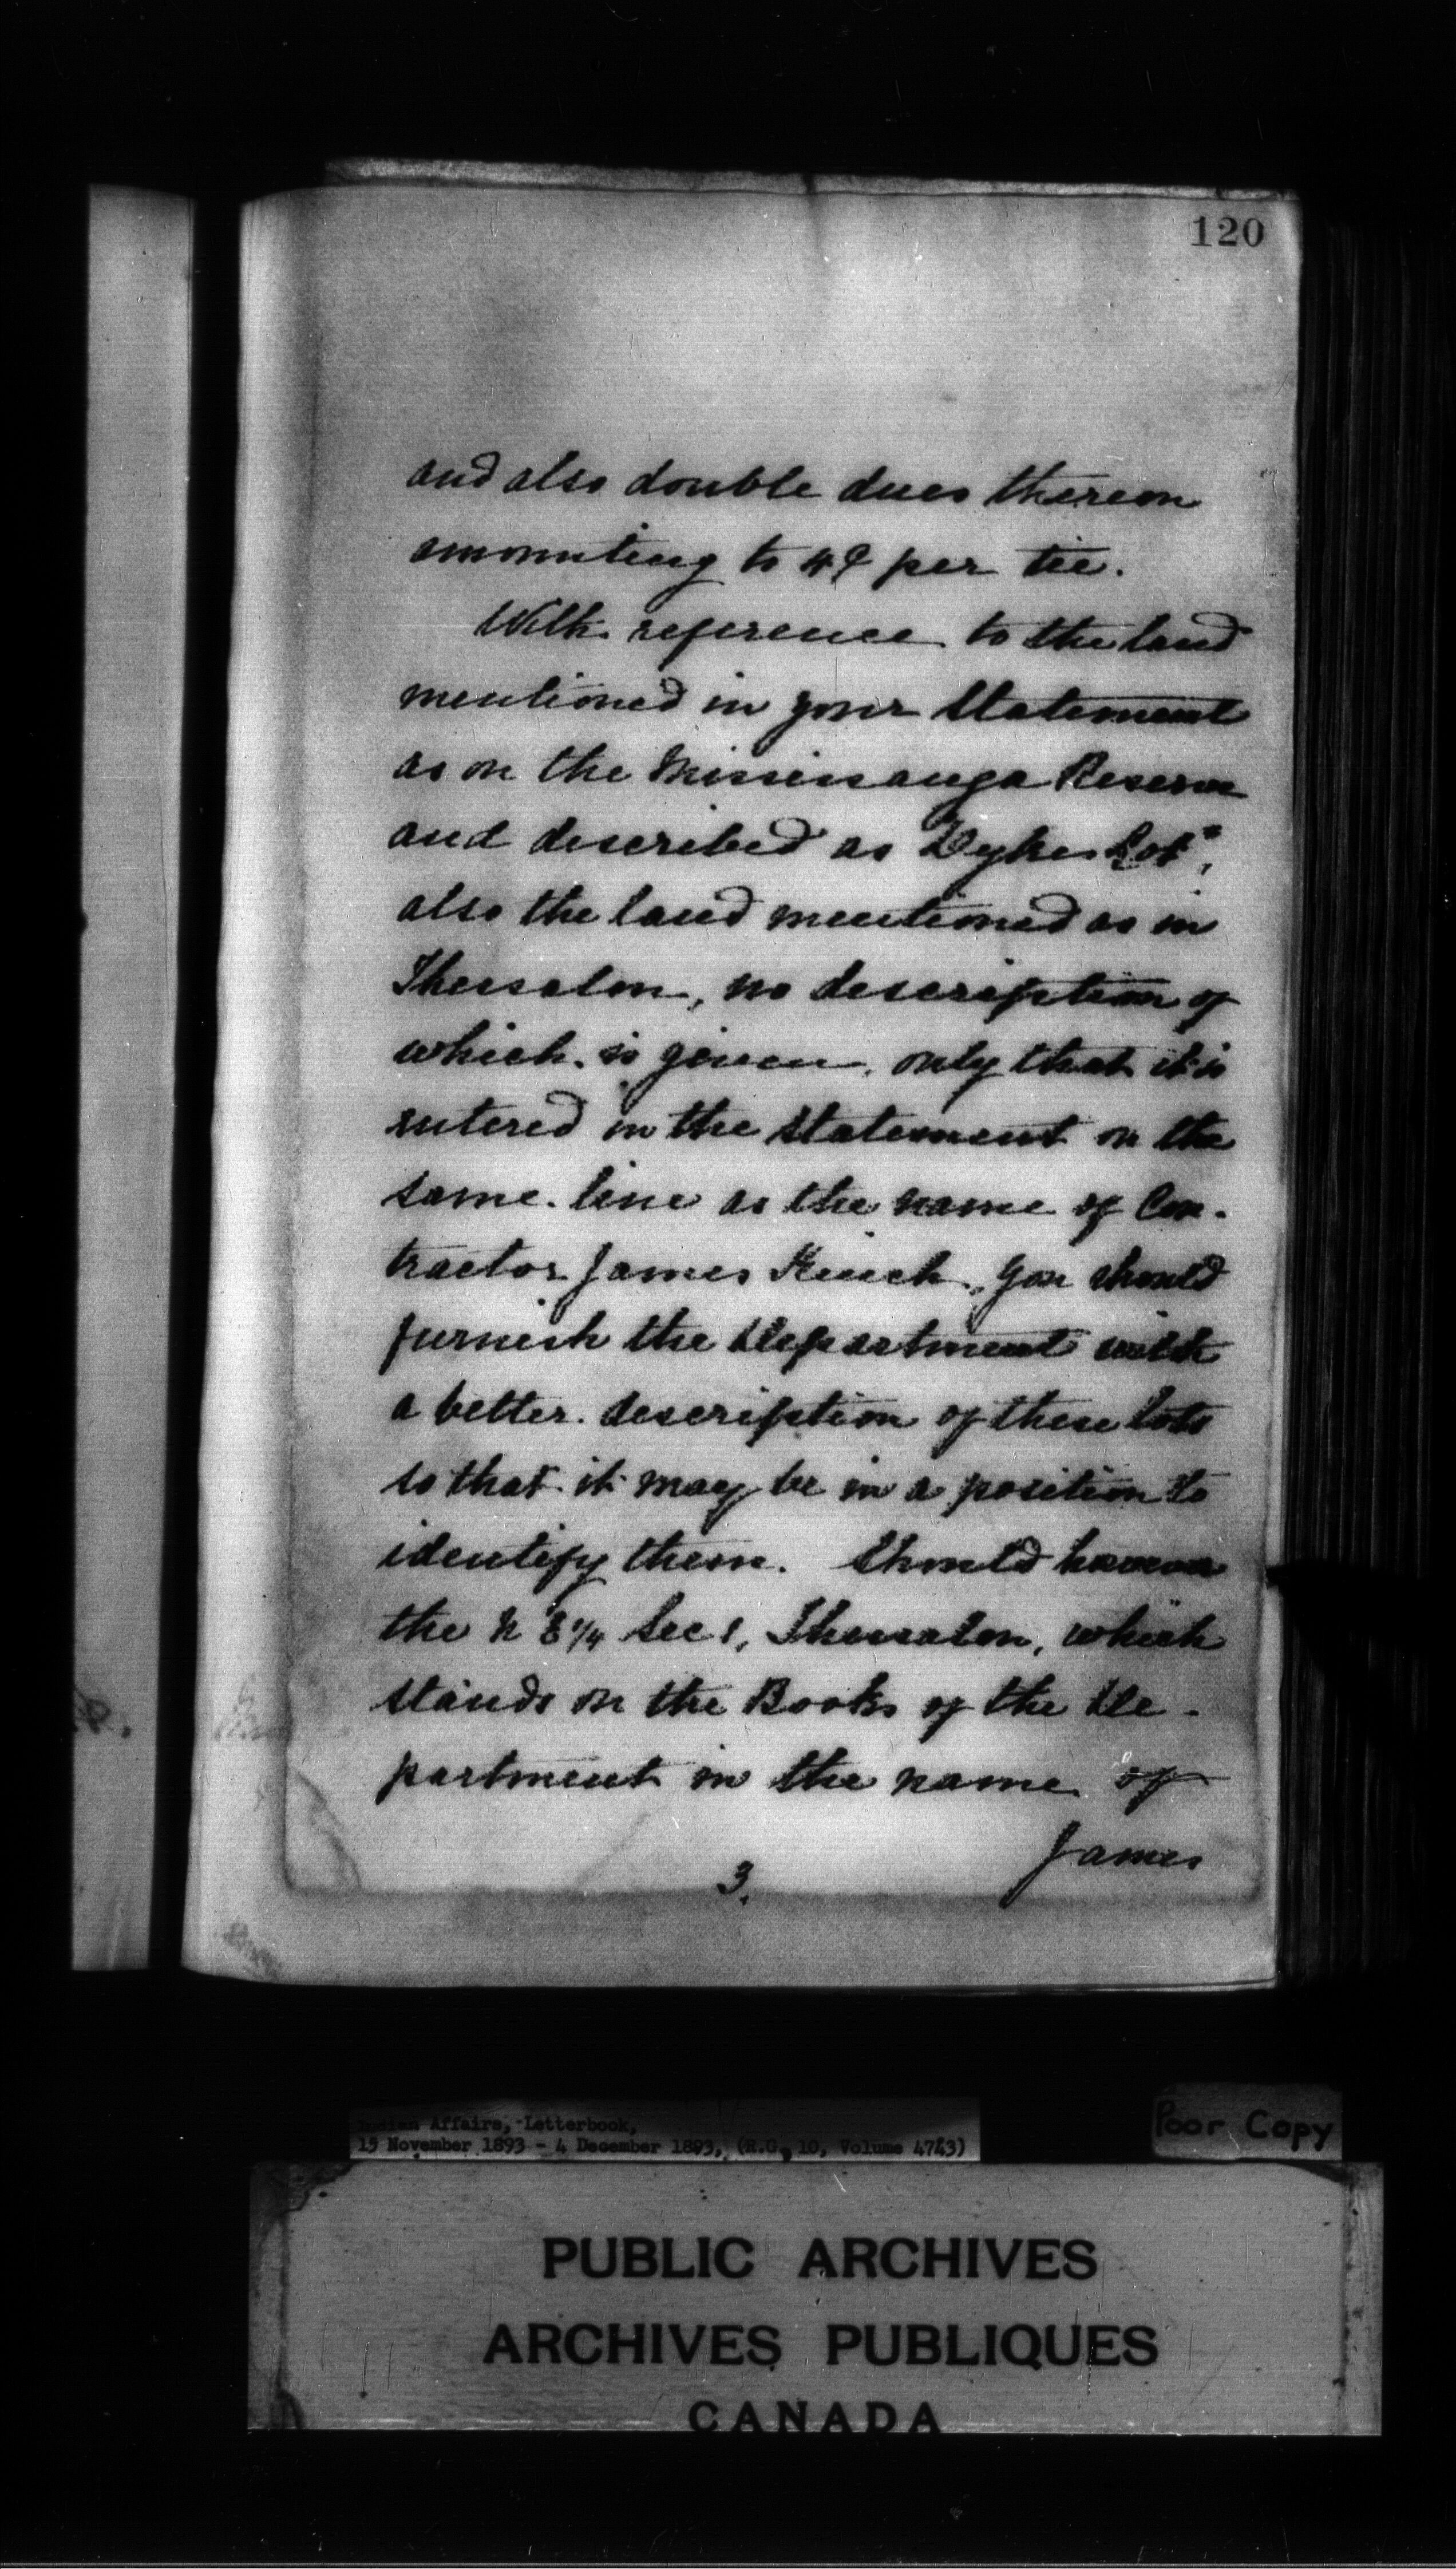 120
and also double dues thereon
amounting to 4¢ per tie.
With reference to the land
mentioned in your Statement
as on the Mississauga Reserve
and described as "Dyke Lot",
also the land mentioned as in
Thessalon, no description of
which is given, only that it is
entered in the Statement on the
same line as the name of Con-
tractor James, you should
furnish the Department with
a better description of these lots
so that it may be in a position to
identify them. Should however
the N E 1/4 Sec 1, Thessalon, which
stands on the Books of the De-
partment in the name of
James
3.
Indian Affairs, Letterbook,
15 November 1893 - 4 December 1893, (R.G. 10, Volume 4743)
Poor Copy
PUBLIC ARCHIVES
ARCHIVES PUBLIQUES
CANADA